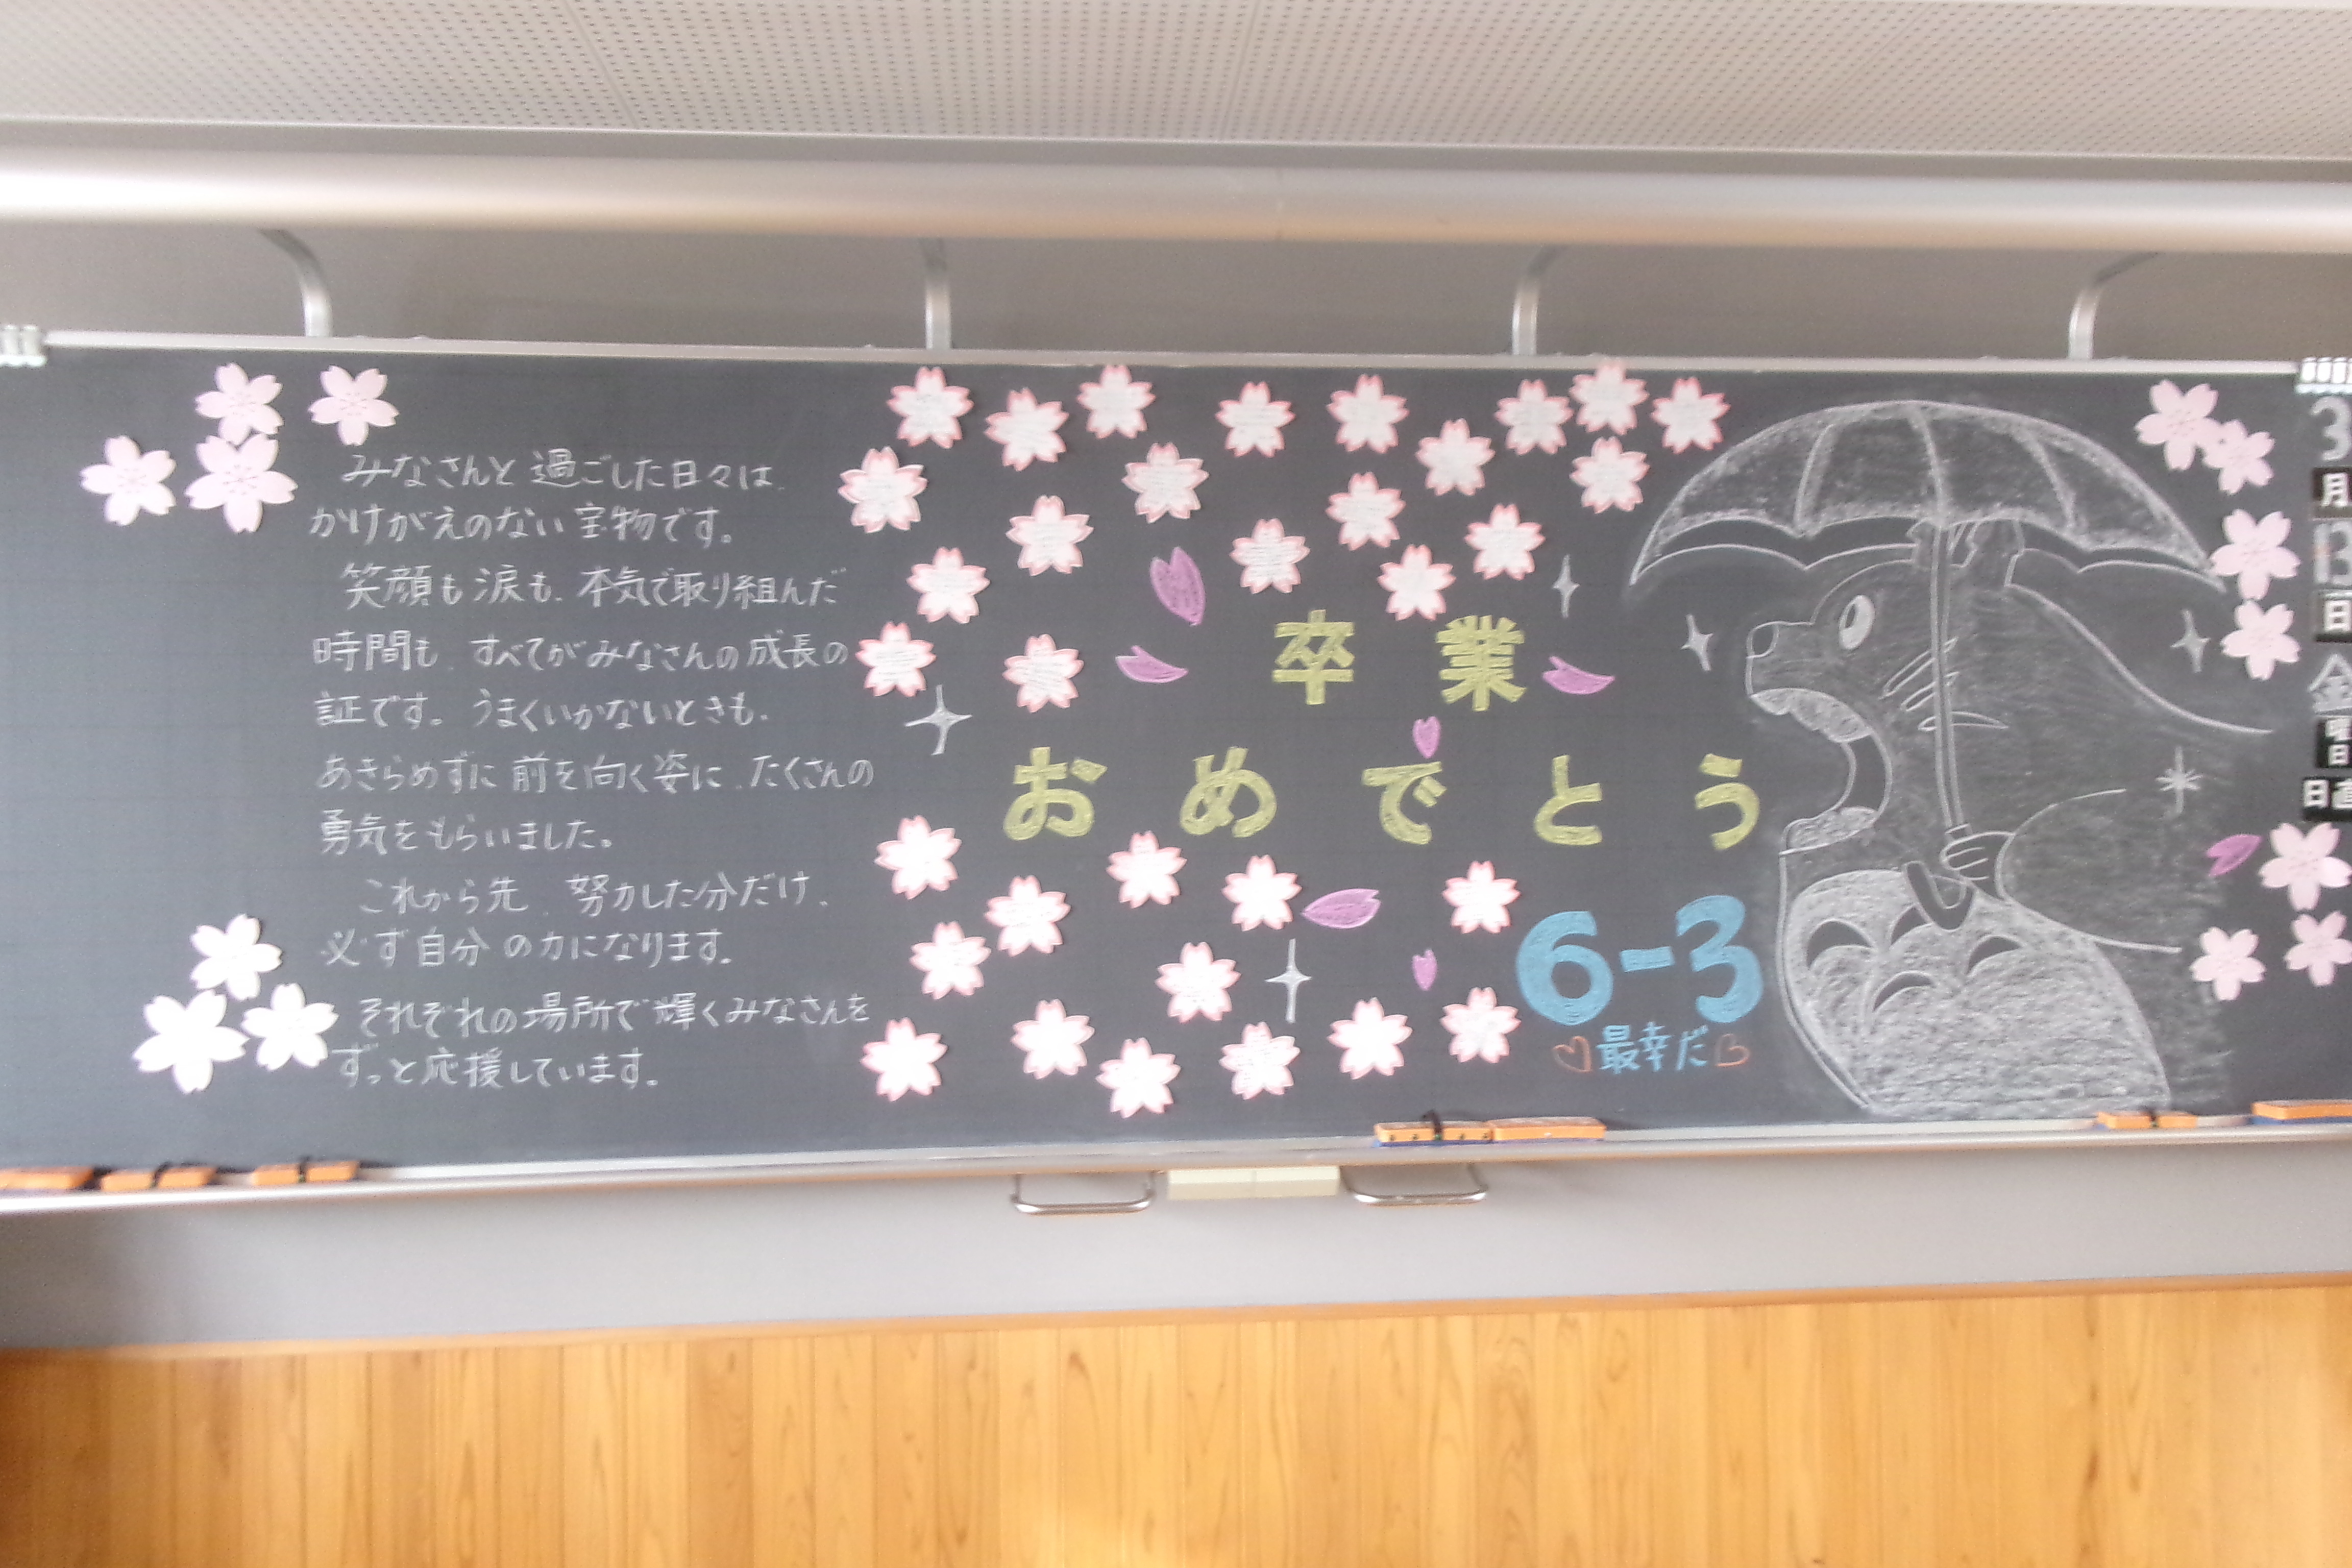 みなさんと過ごした日々は、
かけがえのない宝物です。
笑顔も涙も、本気で取り組んだ
時間も、すべてがみなさんの成長の
証です。うまくいかないときも、
あきらめずに前を向く姿に、たくさんの
勇気をもらいました。
これから先、努力した分だけ、
必ず自分の力になります。
それぞれの場所で輝くみなさんを
ずっと応援しています。
卒業
おめでとう
6-3
♡最幸だ♡
3
月
13
日
金
曜日
日直